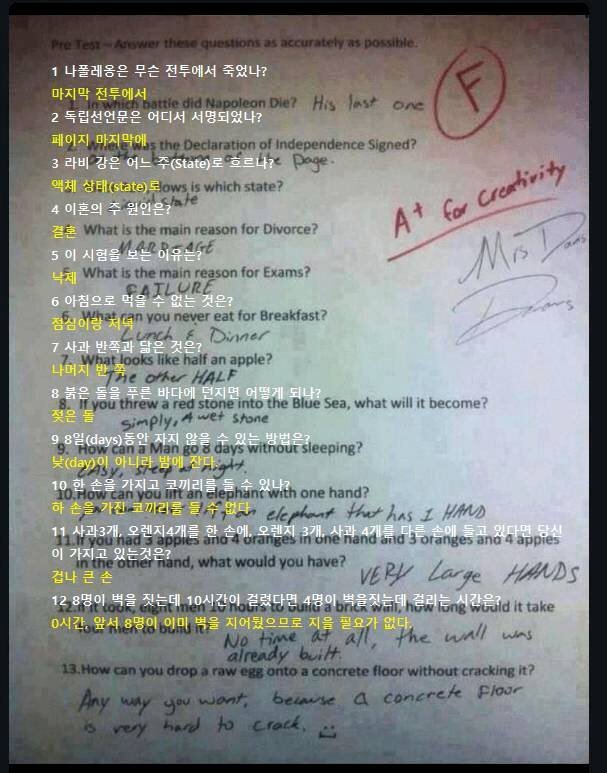 Pre Test - Answer these questions as accurately as possible.
F
1 나폴레옹은 무슨 전투에서 죽었나?
마지막 전투에서
In which battle did Napoleon Die? His last one
2 독립선언문은 어디서 서명되었나?
페이지 마지막에
Where was the Declaration of Independence Signed?
the Page.
3 라비 강은 어느 주(State)로 흐르나?
액체 상태(state)로
lows is which state?
state
A+ for Creativity
Mrs Davis
4 이혼의 주 원인은?
결혼
What is the main reason for Divorce?
MARRIAGE
5 이 시험을 보는 이유는?
낙제
5. What is the main reason for Exams?
FAILURE
6 아침으로 먹을 수 없는 것은?
점심이랑 저녁
6. What can you never eat for Breakfast?
Lunch & Dinner
7 사과 반쪽과 닮은 것은?
나머지 반 쪽
7. What looks like half an apple?
The other HALF
8 붉은 돌을 푸른 바다에 던지면 어떻게 되나?
젖은 돌
8. If you threw a red stone into the Blue Sea, what will it become?
simply, A wet stone
9 8일(days)동안 자지 않을 수 있는 방법은?
낮(day)이 아니라 밤에 잔다.
9. How can a Man go 8 days without sleeping?
10 한 손을 가지고 코끼리를 들 수 있나?
하 손을 가진 코끼리를 들 수 없다
10. How can you lift an elephant with one hand?
an elephant that has 1 HAND
11 사과3개, 오렌지4개를 한 손에, 오렌지 3개, 사과 4개를 다른 손에 들고 있다면 당신
이 가지고 있는것은?
겁나 큰 손
11. If you had 3 apples and 4 oranges in one hand and 3 oranges and 4 apples
in the other hand, what would you have?
VERY Large HANDS
12 8명이 벽을 짓는데 10시간이 걸렸다면 4명이 벽을짓는데 걸리는 시간은?
0시간, 앞서 8명이 이미 벽을 지어뒀으므로 지을 필요가 없다.
12. If it took eight men 10 hours to build a brick wall, how long would it take
four men to build it?
No time at all, the wall was
already built.
13. How can you drop a raw egg onto a concrete floor without cracking it?
Any way you want, because a concrete floor
is very hard to crack.